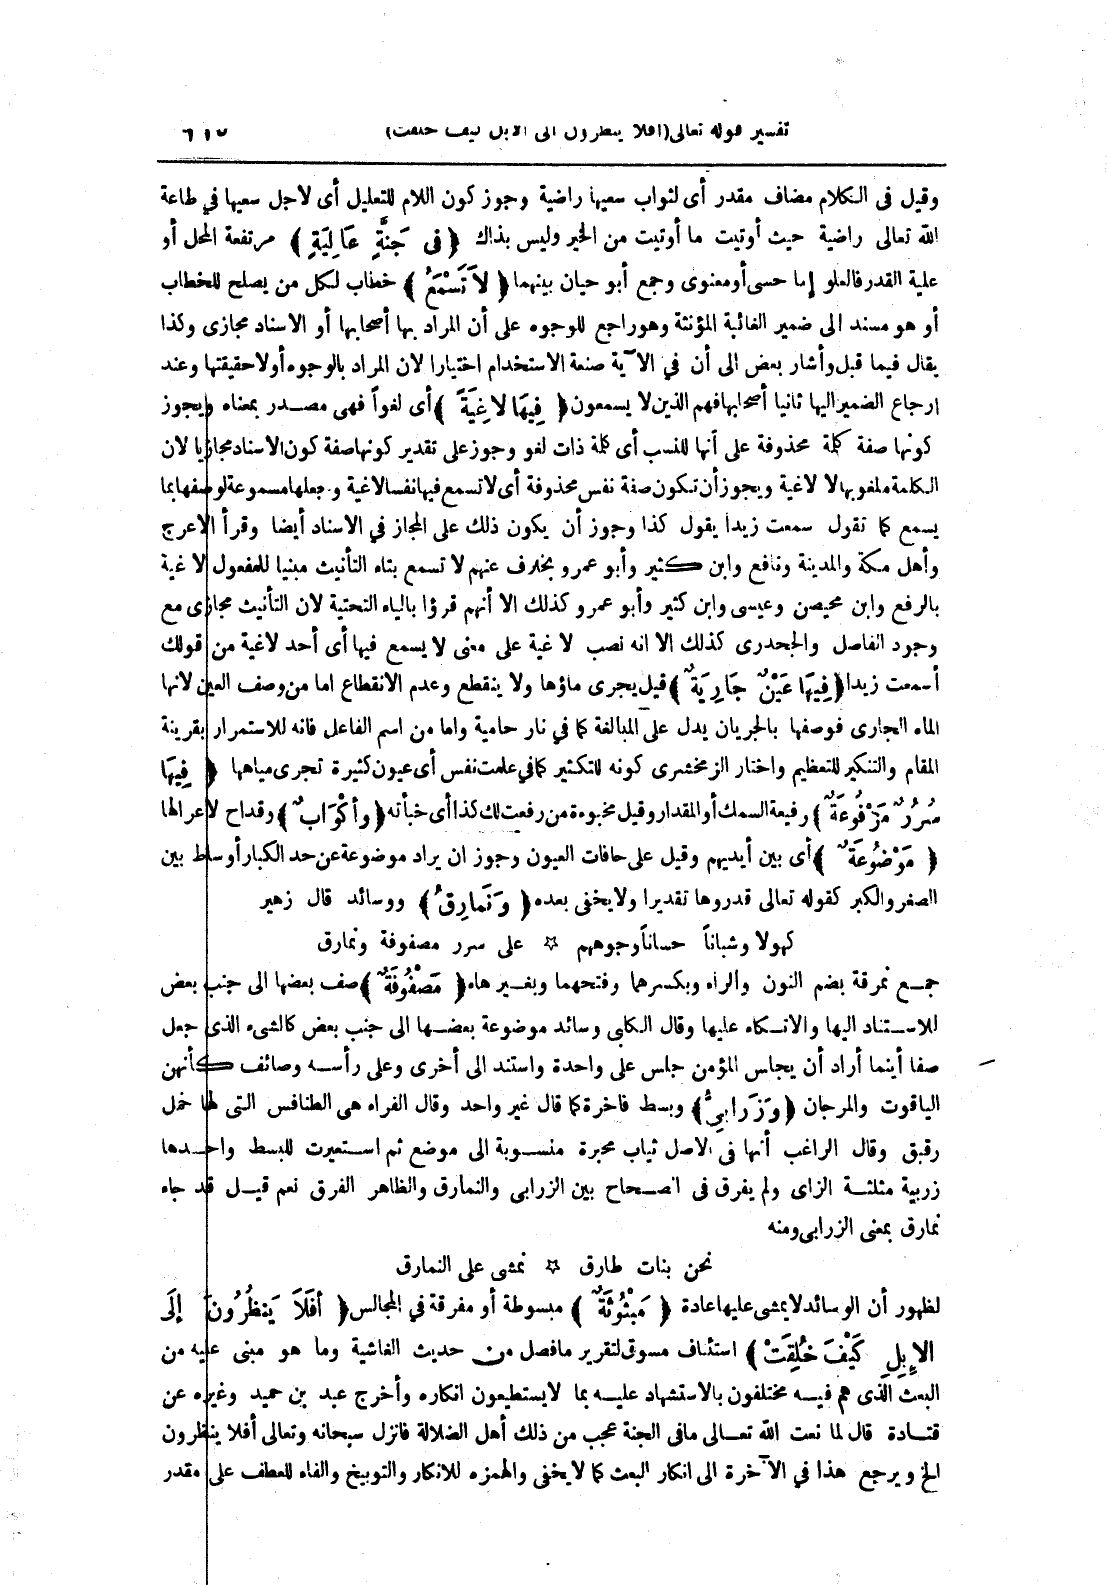 تفسير قوله تعالى (افلا ينظرون الى الابل كيف خلقت)
وقيل فى الكلام مضاف مقدر أى لثواب سعيها راضية وجوز كون اللام للتعليل أى لاجل سعيها في طاعة
الله تعالى راضية حيث أوتيت ما أوتيت من الخير وليس بذاك ﴿ فى جَنَّةٍ عَالِيَةٍ ﴾ مرتفعة المحل أو
علية القدر فالعلو إما حسى أو معنوى وجمع أبو حيان بينهما ﴿ لاَ تَسْمَعُ ﴾ خطاب لكل من يصلح للخطاب
أو هو مسند الى ضمير الغائبة المؤنثة وهو راجع للوجوه على أن المراد بها أصحابها أو الاسناد مجازى وكذا
يقال فيما قبل وأشار بعض الى أن في الآية صنعة الاستخدام اختيارا لان المراد بالوجوه أولا حقيقتها وعند
إرجاع الضمير اليها ثانيا أصحابها فهم الذين لا يسمعون ﴿ فِيهَا لاَغِيَةً ﴾ أى لغواً فهى مصدر بمعناه ويجوز
كونها صفة كلمة محذوفة على أنها للنسب أى كلمة ذات لغو وجوز على تقدير كونها صفة كون الاسناد مجازيا لان
الكلمة ملغو بها لا لاغية ويجوز أن تكون صفة نفس محذوفة أى لا تسمع فيها نفسا لاغية وجعلها مسموعة لوصفها بما
يسمع كما تقول سمعت زيدا يقول كذا وجوز أن يكون ذلك على المجاز في الاسناد أيضا وقرأ الاعرج
وأهل مكة والمدينة ونافع وابن كثير وأبو عمرو بخلاف عنهم لا تسمع بتاء التأنيث مبنيا للمفعول لاغية
بالرفع وابن محيصن وعيسى وابن كثير وأبو عمرو كذلك الا أنهم قرؤا بالياء التحتية لان التأنيث مجازى مع
وجود الفاصل والجحدرى كذلك الا انه نصب لاغية على معنى لا يسمع فيها أى أحد لاغية من قولك
أسمعت زيدا ﴿ فِيهَا عَيْنٌ جَارِيَةٌ ﴾ قيل يجرى ماؤها ولا ينقطع وعدم الانقطاع اما من وصف العين لانها
الماء الجارى فوصفها بالجريان يدل على المبالغة كما في نار حامية واما من اسم الفاعل فانه للاستمرار بقرينة
المقام والتنكير للتعظيم واختار الزمخشرى كونه للتكثير كما في علمت نفس أى عيون كثيرة تجرى مياهها ﴿ فِيهَا
سُرُرٌ مَرْفُوعَةٌ ﴾ رفيعة السمك أو المقدار وقيل مخبوءة من رفعت لك كذا أى خبأته ﴿ وأكْوَابٌ ﴾ وقداح لاعرا لها
﴿ مَوْضُوعَةٌ ﴾ أى بين أيديهم وقيل على حافات العيون وجوز ان يراد موضوعة عن حد الكبار أوساط بين
الصغر والكبر كقوله تعالى قدروها تقديرا ولا يخفى بعده ﴿ وَنَمَارِقُ ﴾ ووسائد قال زهير
كهولا وشباناً حساناً وجوههم ☆ على سرر مصفوفة ونمارق
جمع نمرقة بضم النون والراء وبكسرهما وفتحهما وبغير هاء ﴿ مَصْفُوفَةٌ ﴾ صف بعضها الى جنب بعض
للاستناد اليها والاتكاء عليها وقال الكلبى وسائد موضوعة بعضها الى جنب بعض كالشىء الذى جعل
صفا أينما أراد أن يجلس المؤمن جلس على واحدة واستند الى أخرى وعلى رأسه وصائف كأنهن
الياقوت والمرجان ﴿ وَزَرابِيُّ ﴾ وبسط فاخرة كما قال غير واحد وقال الفراء هى الطنافس التى لها خمل
رقيق وقال الراغب أنها فى الاصل ثياب محبرة منسوبة الى موضع ثم استعيرت للبسط واحدها
زربية مثلثة الزاى ولم يفرق فى الصحاح بين الزرابى والنمارق والظاهر الفرق نعم قيل قد جاء
نمارق بمعنى الزرابى ومنه
نحن بنات طارق ☆ نمشى على النمارق
لظهور أن الوسائد لا يمشى عليها عادة ﴿ مَبْثُوثَةٌ ﴾ مبسوطة أو مفرقة في المجالس ﴿ أَفَلاَ يَنظُرُونَ إِلَى
الإِبِلِ كَيْفَ خُلِقَتْ ﴾ استئناف مسوق لتقرير ما فصل من حديث الغاشية وما هو مبنى عليه من
البعث الذى هم فيه مختلفون بالاستشهاد عليه بما لا يستطيعون انكاره وأخرج عبد بن حميد وغيره عن
قتادة قال لما نعت الله تعالى ما فى الجنة عجب من ذلك أهل الضلالة فانزل سبحانه وتعالى أفلا ينظرون
الخ ويرجع هذا في الآخرة الى انكار البعث كما لا يخفى والهمزه للانكار والتوبيخ والفاء للعطف على مقدر